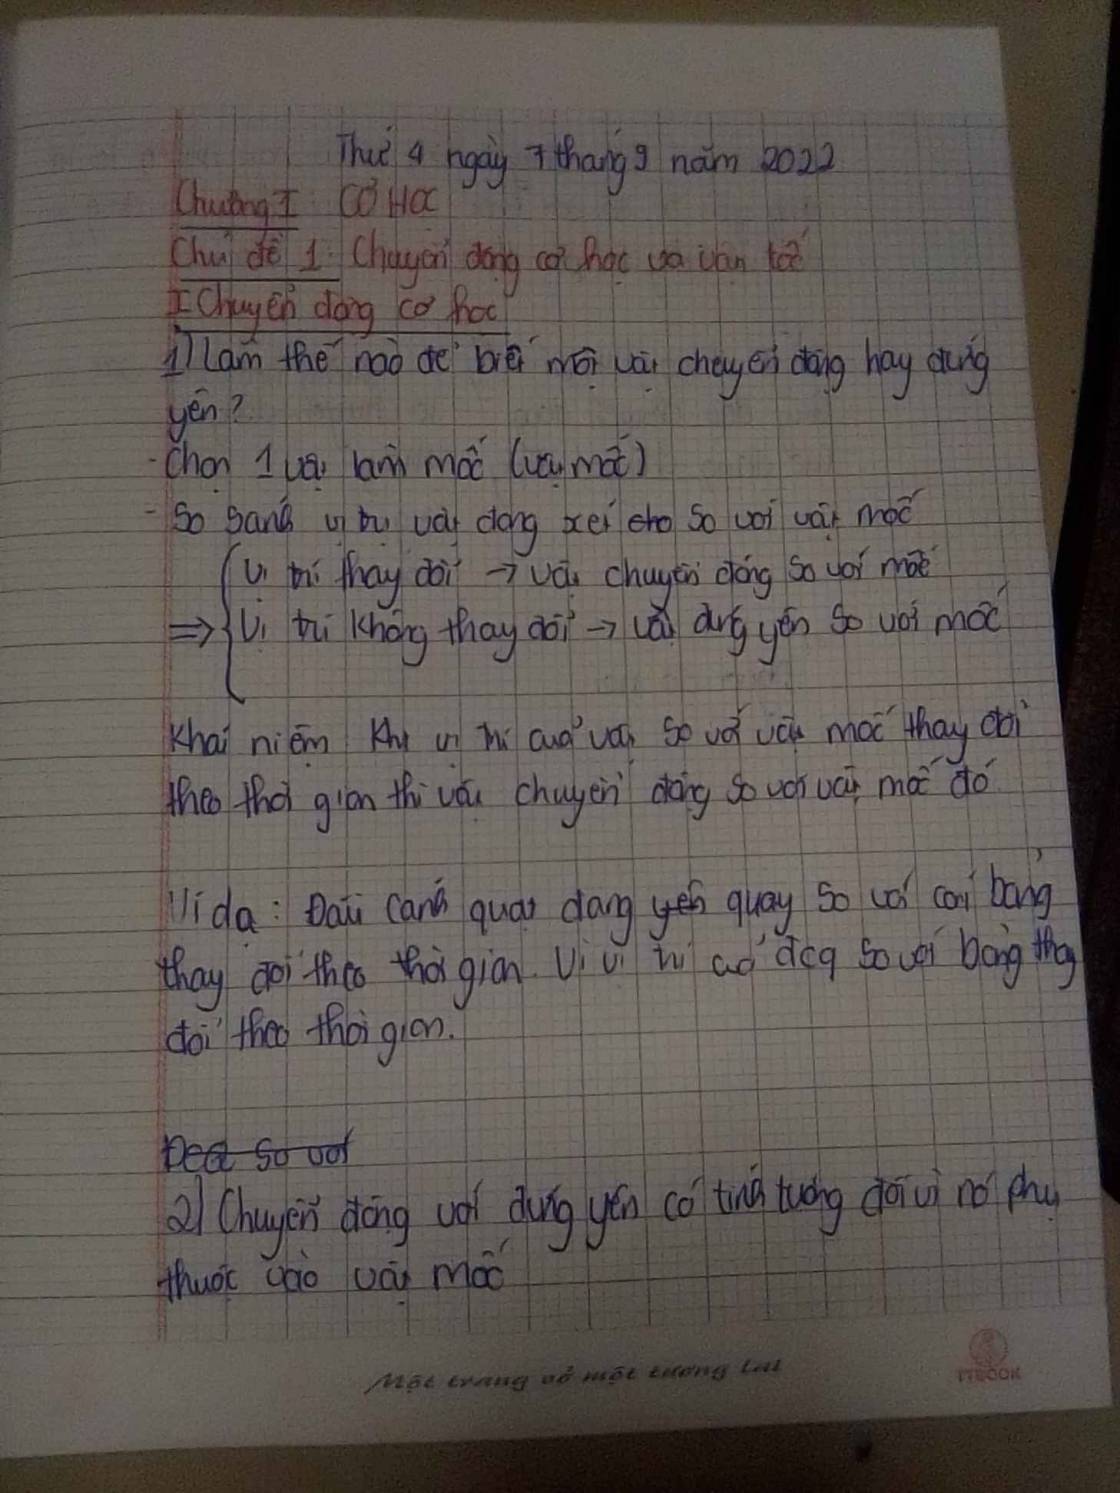 Thứ 4 ngày 7 tháng 9 năm 2022
Chương I CƠ HỌC
Chủ đề 1: Chuyển động cơ học và vận tốc
I Chuyển động cơ học
1) Làm thế nào để biết một vật chuyển động hay đứng
yên?
- Chọn 1 vật làm mốc (vật mốc)
- So sánh vị trí vật đang xét cho so với vật mốc
Vị trí thay đổi → vật chuyển động so với mốc
⇒ { Vị trí không thay đổi → vật đứng yên so với mốc
Khái niệm Khi vị trí của vật so với vật mốc thay đổi
theo thời gian thì vật chuyển động so với vật mốc đó.
Ví dụ: Đầu cánh quạt đang yên quay so với cái bảng
thay đổi theo thời gian. Vì vị trí của đcq so với bảng thay
đổi theo thời gian.
so với
2) Chuyển động với đứng yên có tính tương đối vì nó phụ
thuộc vào vật mốc
Một trang vở một tương lai
TTBOOK